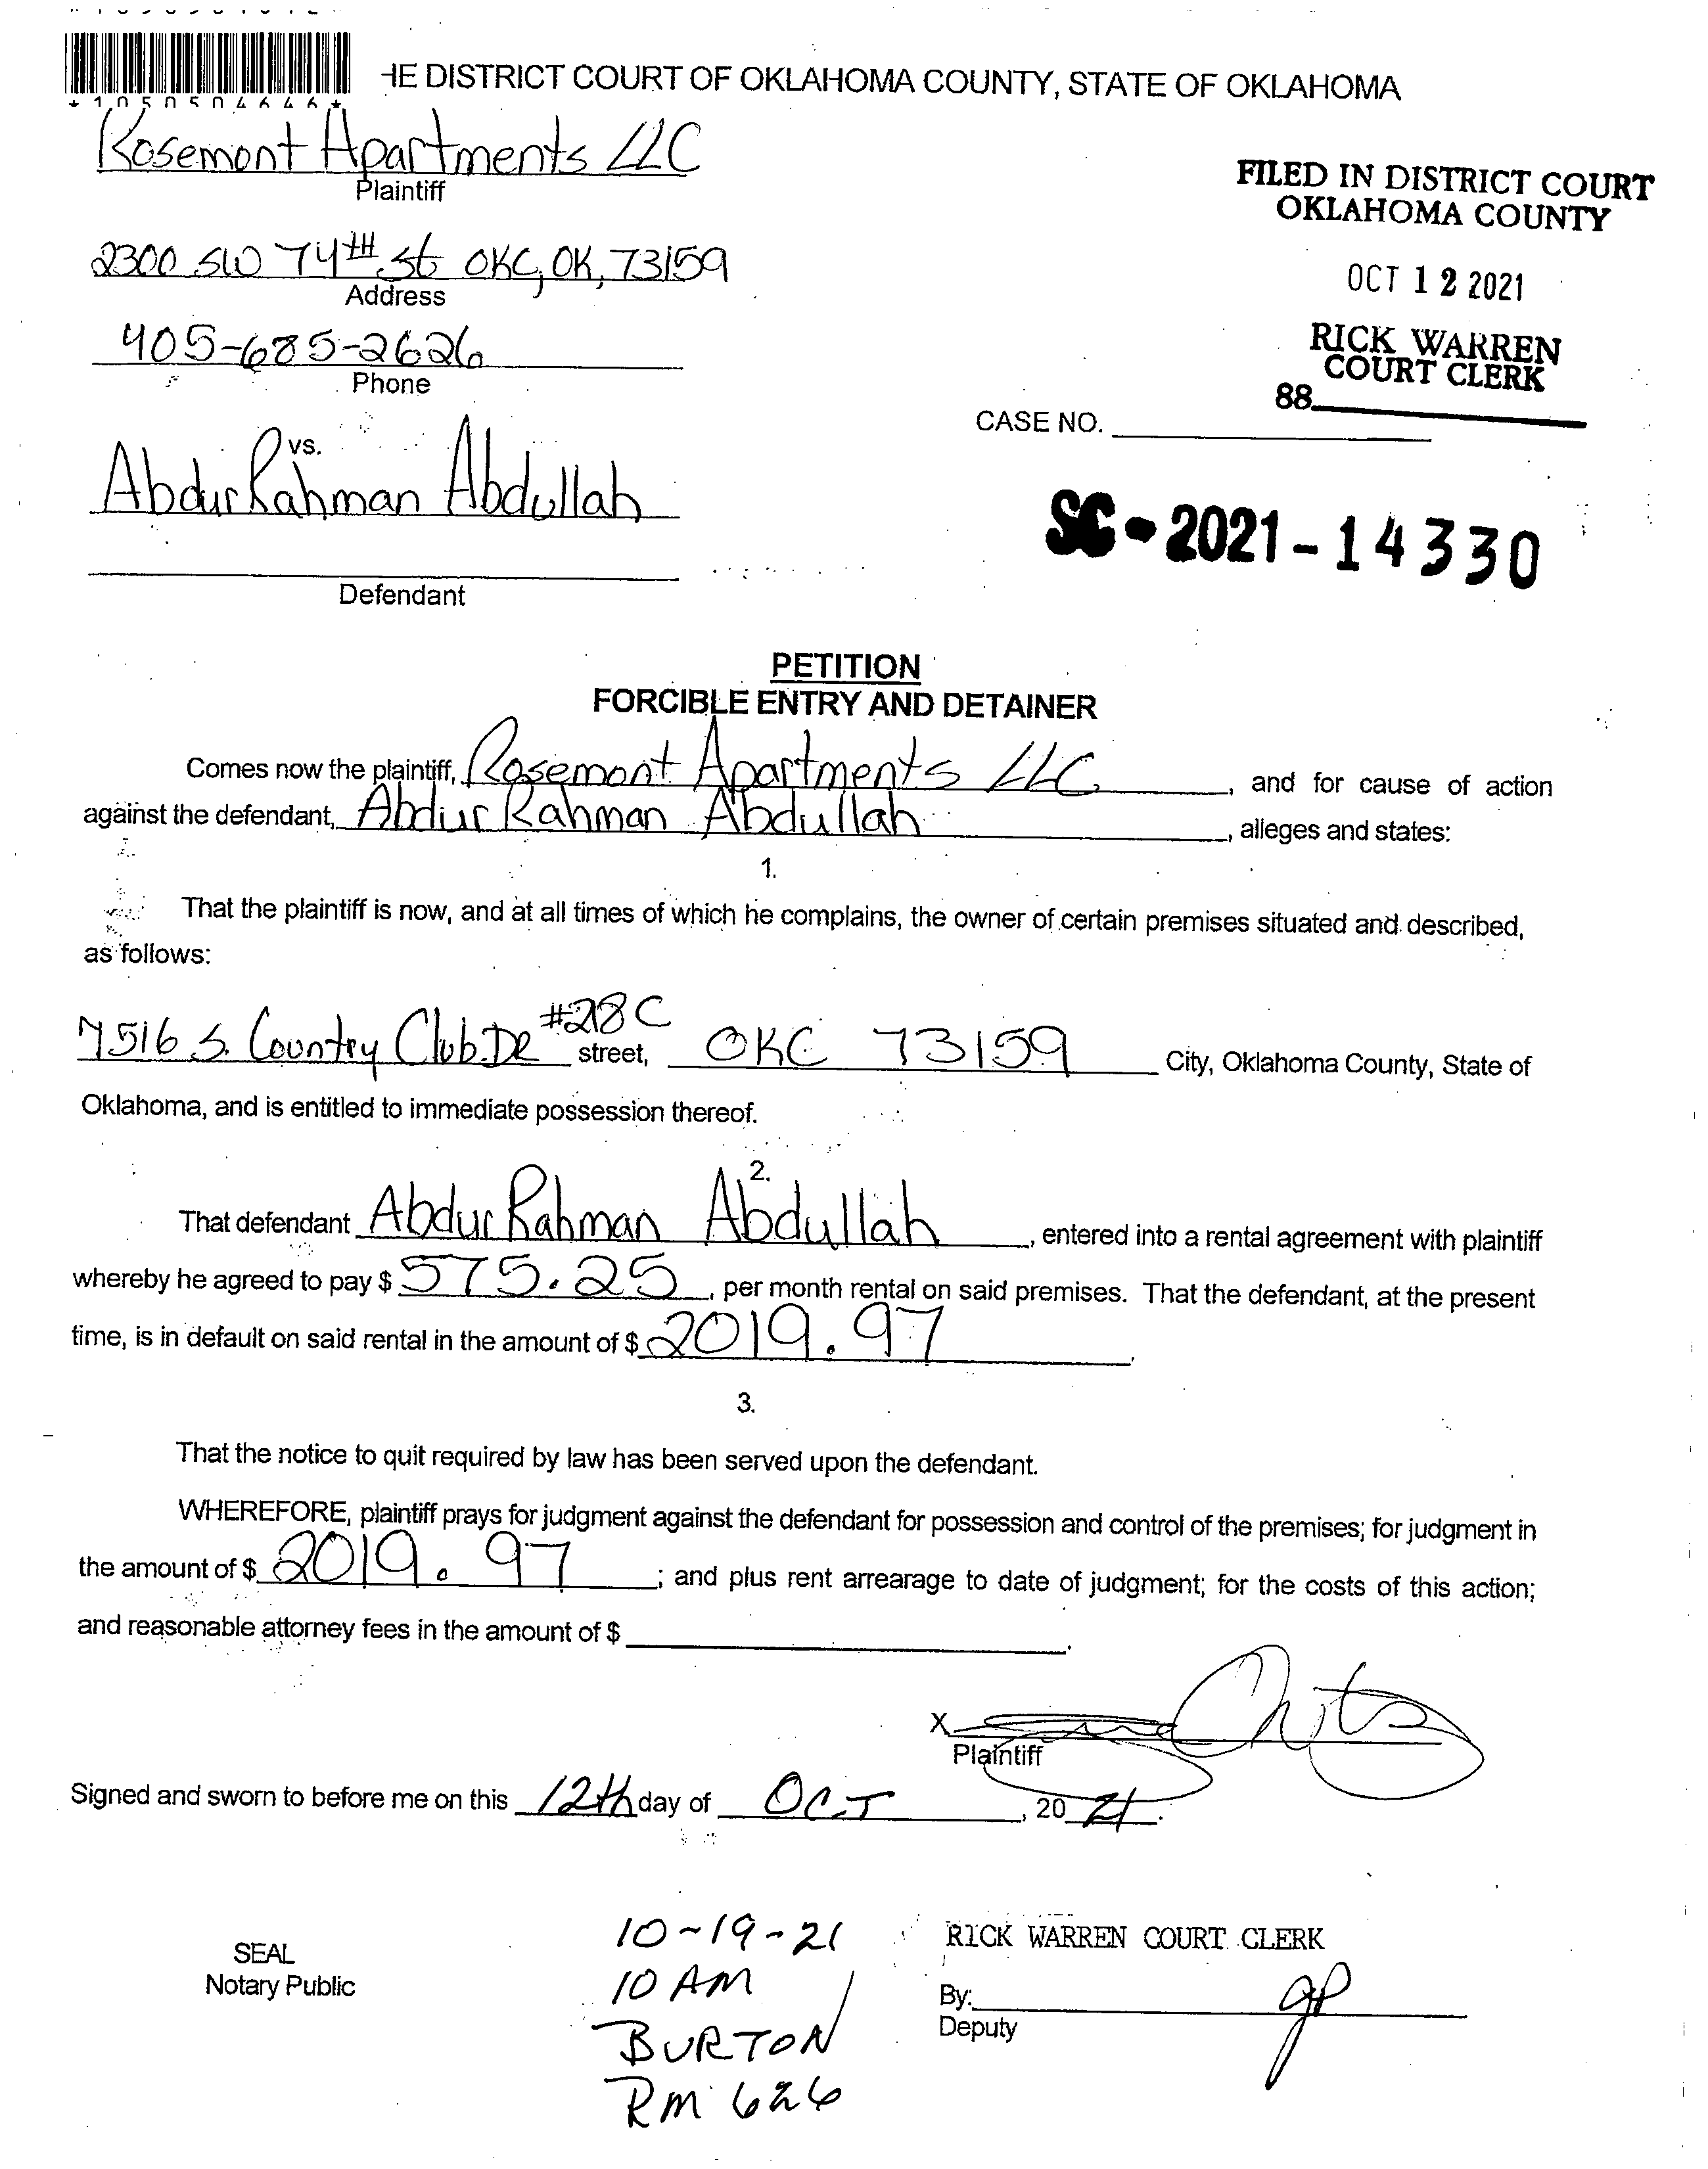 *1050504646*
HE DISTRICT COURT OF OKLAHOMA COUNTY, STATE OF OKLAHOMA
Rosemont Apartments LLC
Plaintiff
FILED IN DISTRICT COURT
OKLAHOMA COUNTY
2300 SW 74TH St OKC, OK, 73159
Address
OCT 12 2021
405-685-2626
Phone
RICK WARREN
COURT CLERK
88
CASE NO.
vs.
Abdur Rahman Abdullah
SC-2021-14330
Defendant
PETITION
FORCIBLE ENTRY AND DETAINER
Comes now the plaintiff, Rosemont Apartments LLC, and for cause of action
against the defendant, Abdur Rahman Abdullah, alleges and states:
1.
That the plaintiff is now, and at all times of which he complains, the owner of certain premises situated and described,
as follows:
7516 S. Country Club DR #28C street, OKC 73159 City, Oklahoma County, State of
Oklahoma, and is entitled to immediate possession thereof.
2.
That defendant Abdur Rahman Abdullah, entered into a rental agreement with plaintiff
whereby he agreed to pay $ 575.25, per month rental on said premises. That the defendant, at the present
time, is in default on said rental in the amount of $ 2019.97.
3.
That the notice to quit required by law has been served upon the defendant.
WHEREFORE, plaintiff prays for judgment against the defendant for possession and control of the premises; for judgment in
the amount of $ 2019.97; and plus rent arrearage to date of judgment; for the costs of this action;
and reasonable attorney fees in the amount of $ .
X
Plaintiff
Signed and sworn to before me on this 12th day of OCT, 20 21.
10-19-21
10 AM
BURTON
RM 626
SEAL
Notary Public
RICK WARREN COURT CLERK
By: gp
Deputy